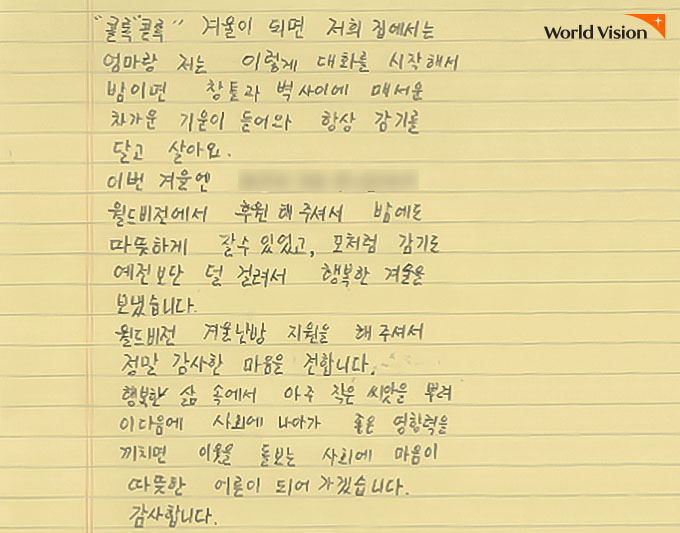 World Vision
"콜록"콜록" 겨울이 되면 저희 집에서는
엄마랑 저는 이렇게 대화를 시작해서
밤이면 창틀과 벽사이에 매서운
차가운 기운이 들어와 항상 감기를
달고 살아요.
이번 겨울엔
월드비전에서 후원 해 주셔서 밤에도
따뜻하게 잘수 있었고, 모처럼 감기도
예전보단 덜 걸려서 행복한 겨울을
보냈습니다.
월드비전 겨울난방 지원을 해 주셔서
정말 감사한 마음을 전합니다.
행복한 삶 속에서 아주 작은 씨앗을 뿌려
이다음에 사회에 나아가 좋은 영향력을
끼치면 이웃을 돌보는 사회에 마음이
따뜻한 어른이 되어 가겠습니다.
감사합니다.